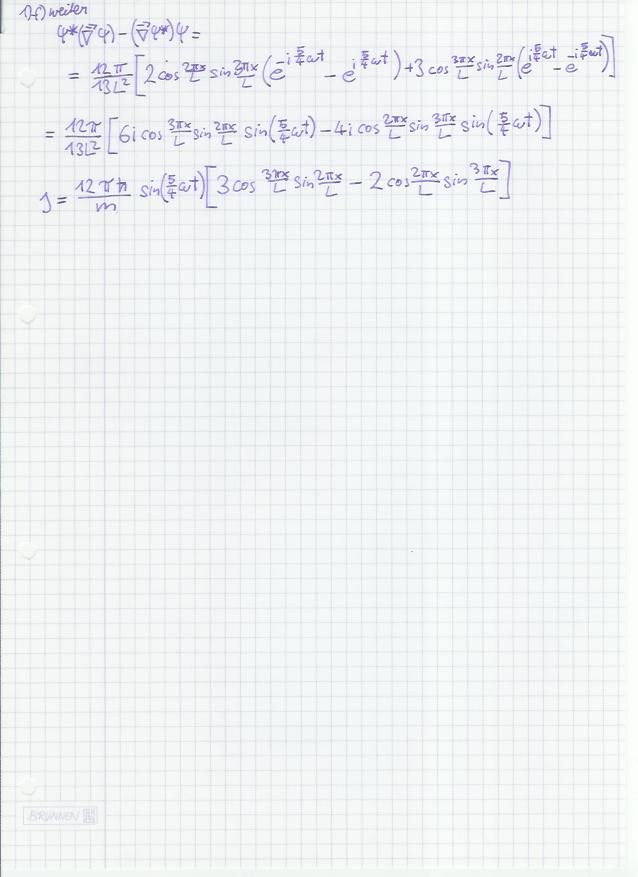 1)f) weiter
ψ*(∇⃗ψ) − (∇⃗ψ*)ψ =
= 12π/13L² [2 cos 2πx/L sin 3πx/L (e^(-i 5/4 ωt) − e^(i 5/4 ωt)) + 3 cos 3πx/L sin 2πx/L (e^(i 5/4 ωt) − e^(-i 5/4 ωt))]
= 12π/13L² [6i cos 3πx/L sin 2πx/L sin(5/4 ωt) − 4i cos 2πx/L sin 3πx/L sin(5/4 ωt)]
j = 12πħ/m sin(5/4 ωt) [3 cos 3πx/L sin 2πx/L − 2 cos 2πx/L sin 3πx/L]
BRUNNEN